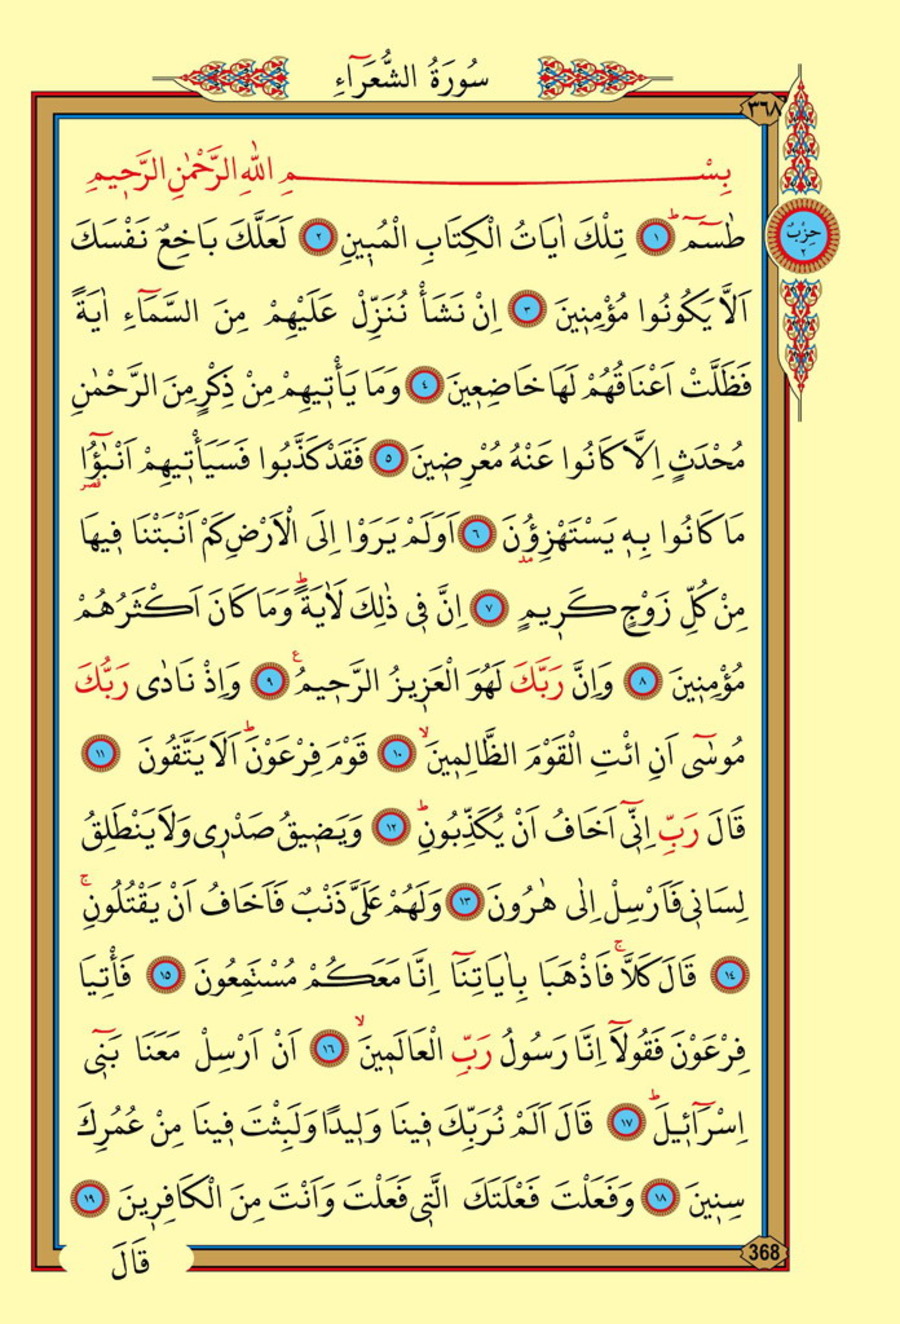 سُورَةُ الشُّعَرَٓاءِ
٣٦٨
حِزْبٌ
٢
بِسْـــــــــــــمِ اللّٰهِ الرَّحْمٰنِ الرَّحٖيمِ
طٰسٓمٓۜ ١ تِلْكَ اٰيَاتُ الْكِتَابِ الْمُبٖينِ ٢ لَعَلَّكَ بَاخِعٌ نَفْسَكَ
اَلَّا يَكُونُوا مُؤْمِنٖينَ ٣ اِنْ نَشَأْ نُنَزِّلْ عَلَيْهِمْ مِنَ السَّمَٓاءِ اٰيَةً
فَظَلَّتْ اَعْنَاقُهُمْ لَهَا خَاضِعٖينَ ٤ وَمَا يَأْتٖيهِمْ مِنْ ذِكْرٍ مِنَ الرَّحْمٰنِ
مُحْدَثٍ اِلَّا كَانُوا عَنْهُ مُعْرِضٖينَ ٥ فَقَدْ كَذَّبُوا فَسَيَأْتٖيهِمْ اَنْبٰٓؤُا
قصر
مَا كَانُوا بِهٖ يَسْتَهْزِؤُنَ ٦ اَوَلَمْ يَرَوْا اِلَى الْاَرْضِ كَمْ اَنْبَتْنَا فٖيهَا
مد
مِنْ كُلِّ زَوْجٍ كَرٖيمٍ ٧ اِنَّ فٖى ذٰلِكَ لَاٰيَةًۜ وَمَا كَانَ اَكْثَرُهُمْ
مُؤْمِنٖينَ ٨ وَاِنَّ رَبَّكَ لَهُوَ الْعَزٖيزُ الرَّحٖيمُࣖ ٩ وَاِذْ نَادٰى رَبُّكَ
مُوسٰٓى اَنِ ائْتِ الْقَوْمَ الظَّالِمٖينَۙ ١٠ قَوْمَ فِرْعَوْنَۜ اَلَا يَتَّقُونَ ١١
قَالَ رَبِّ اِنّٖٓى اَخَافُ اَنْ يُكَذِّبُونِۜ ١٢ وَيَضٖيقُ صَدْرٖى وَلَا يَنْطَلِقُ
لِسَانٖى فَاَرْسِلْ اِلٰى هٰرُونَ ١٣ وَلَهُمْ عَلَىَّ ذَنْبٌ فَاَخَافُ اَنْ يَقْتُلُونِۚ
١٤ قَالَ كَلَّاۚ فَاذْهَبَا بِاٰيَاتِنَٓا اِنَّا مَعَكُمْ مُسْتَمِعُونَ ١٥ فَأْتِيَا
فِرْعَوْنَ فَقُولَٓا اِنَّا رَسُولُ رَبِّ الْعَالَمٖينَۙ ١٦ اَنْ اَرْسِلْ مَعَنَا بَنٖٓى
اِسْرَٓائٖيلَۜ ١٧ قَالَ اَلَمْ نُرَبِّكَ فٖينَا وَلٖيدًا وَلَبِثْتَ فٖينَا مِنْ عُمُرِكَ
سِنٖينَ ١٨ وَفَعَلْتَ فَعْلَتَكَ الَّتٖى فَعَلْتَ وَاَنْتَ مِنَ الْكَافِرٖينَ ١٩
368
قَالَ